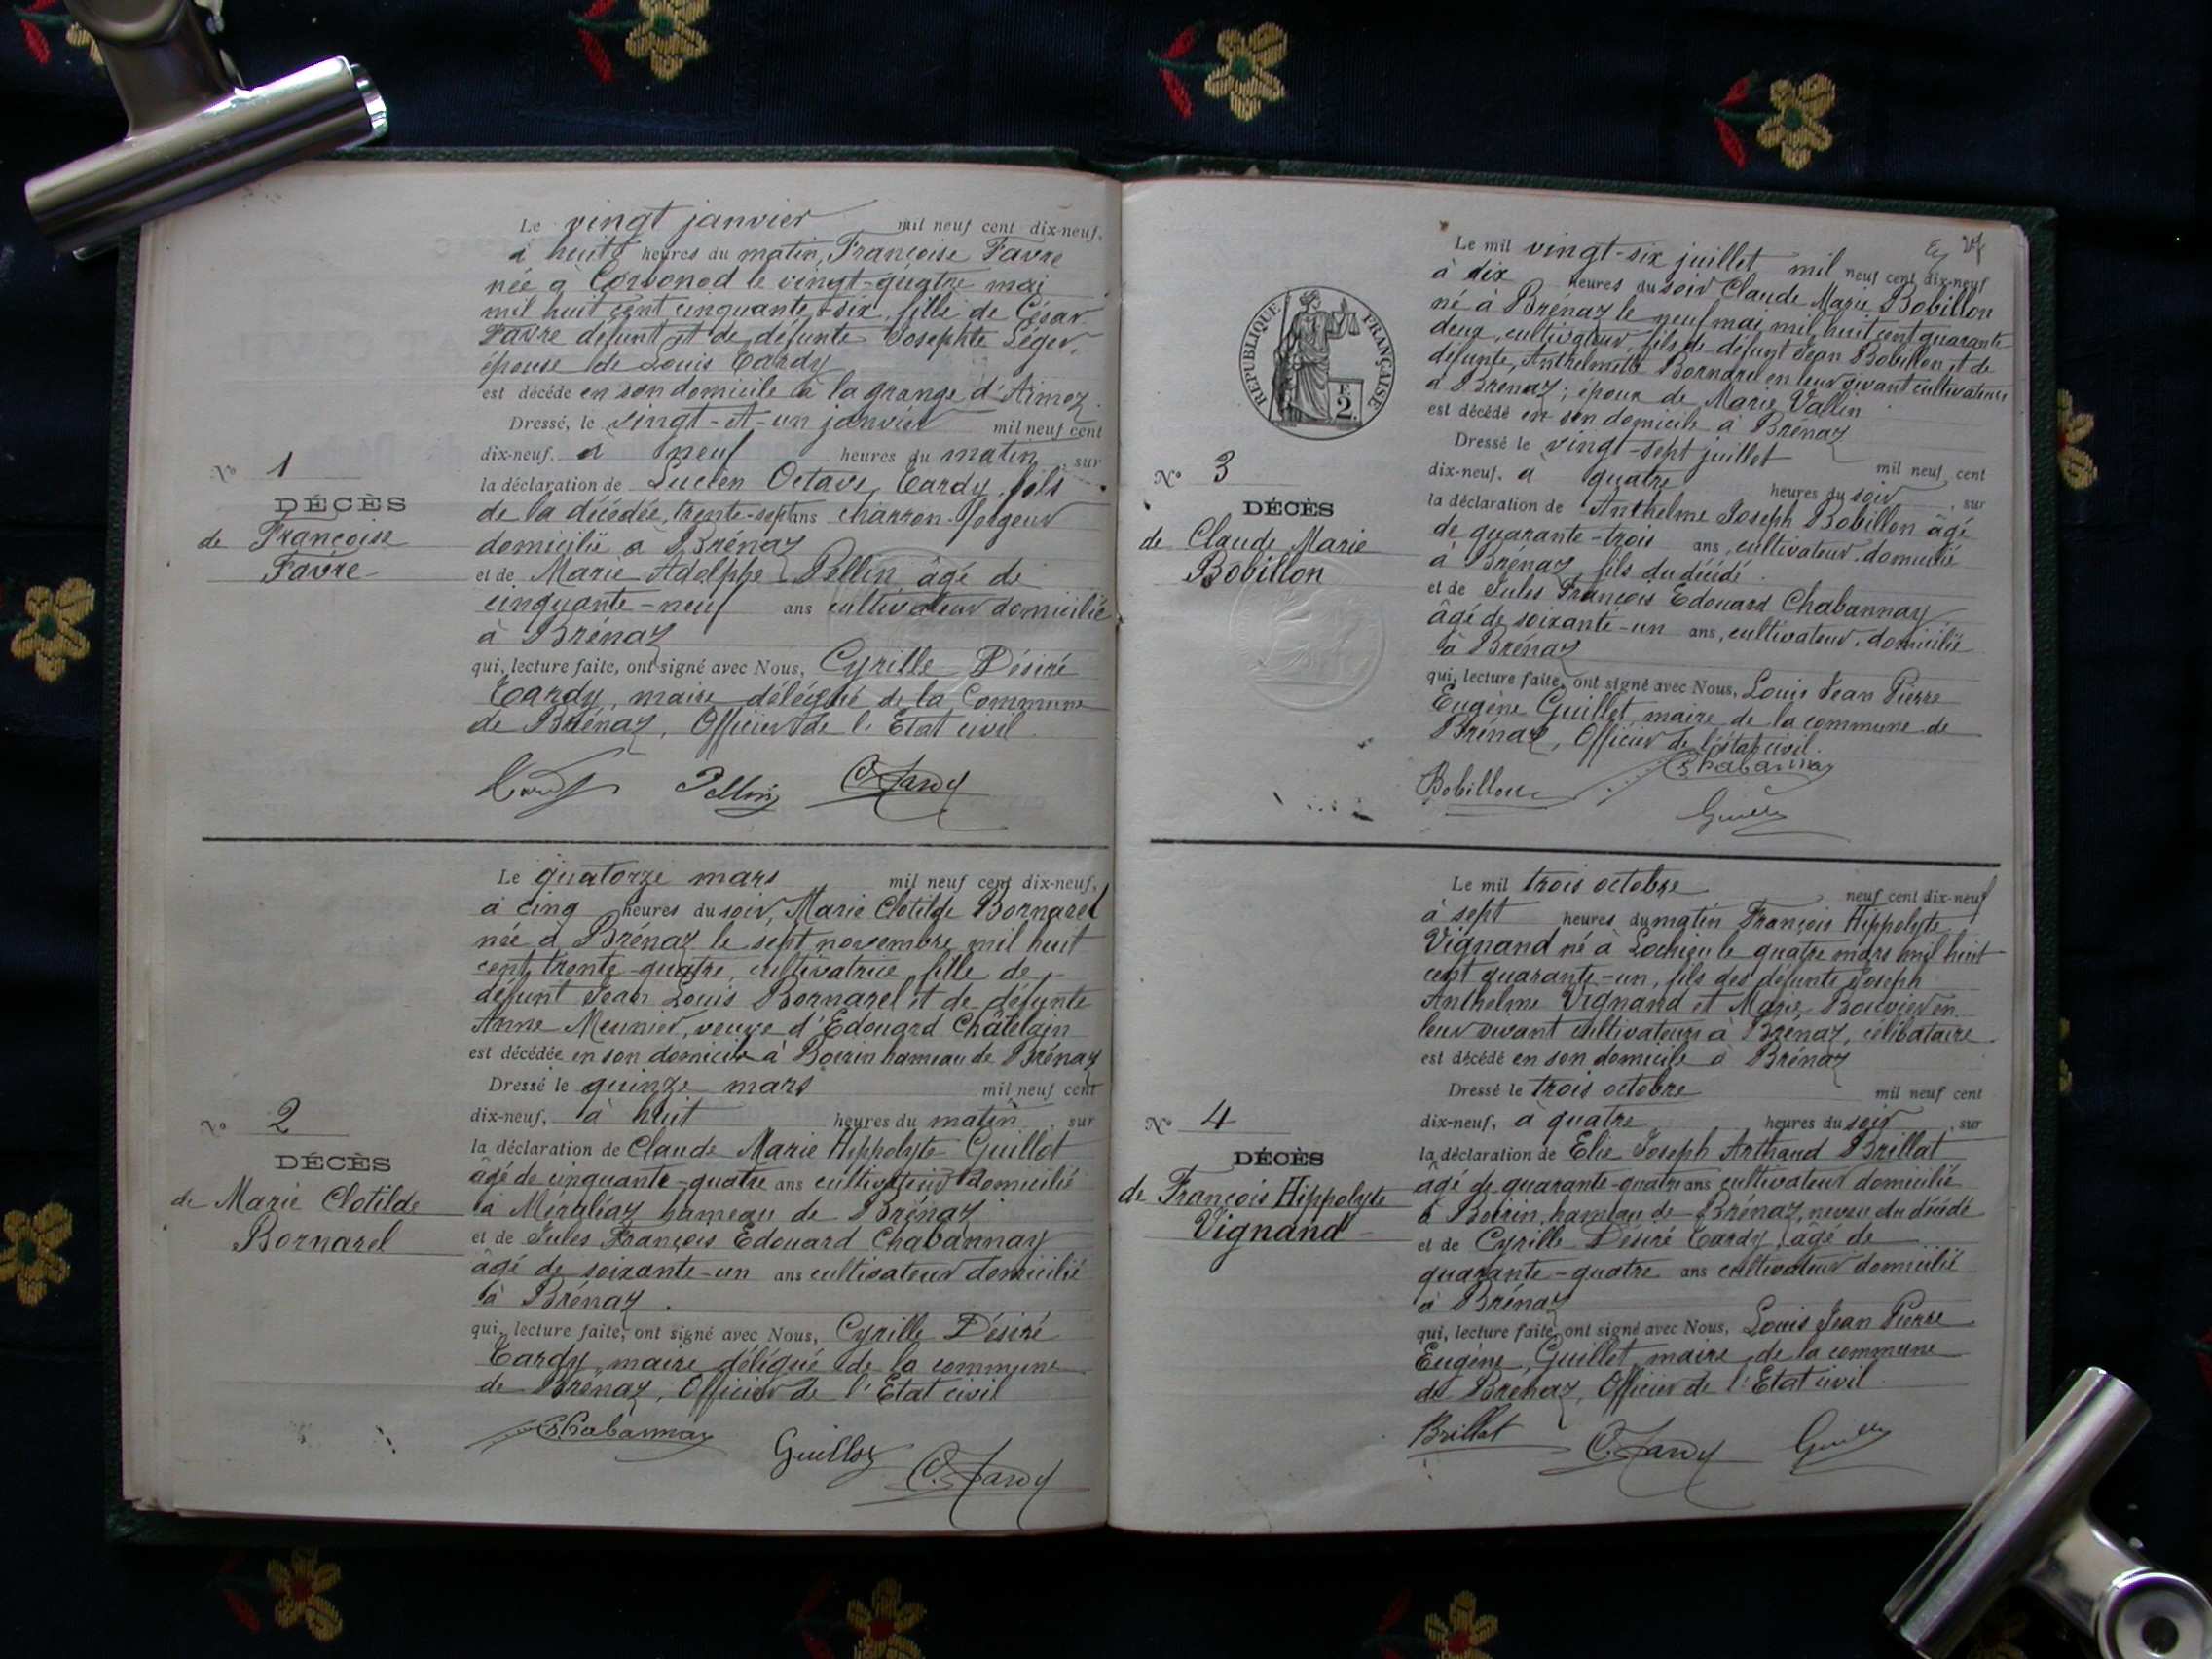 Le vingt janvier mil neuf cent dix-neuf,
à huit heures du matin, Françoise Favre
née à Corbonod le vingt-quatre mai
mil huit cent cinquante-six, fille de César
Favre défunt et de défunte Josephte Léger,
épouse de Louis Tardy
est décédé en son domicile à la grange d'Aimoz.
Dressé, le vingt-et-un janvier mil neuf cent
dix-neuf, à neuf heures du matin, sur
la déclaration de Lucien Octave Tardy, fils
de la décédée, trente-sept ans charron-forgeur
domicilié à Brénaz
et de Marie Adolphe Pellin âgé de
cinquante-neuf ans cultivateur domicilié
à Brénaz
qui, lecture faite, ont signé avec Nous, Cyrille Désiré
Tardy, maire délégué de la Commune
de Brénaz, Officier de l'Etat civil.
Pellin C. Tardy
No 1
DÉCÈS
de Françoise
Favre
Le quatorze mars mil neuf cent dix-neuf,
à cinq heures du soir, Marie Clotilde Bornarel
née à Brénaz le sept novembre mil huit
cent trente-quatre, cultivatrice, fille de
défunt Jean Louis Bornarel et de défunte
Anne Meunier, veuve d'Edouard Châtelain
est décédée en son domicile à Boirin hameau de Brénaz
Dressé le quinze mars mil neuf cent
dix-neuf, à huit heures du matin, sur
la déclaration de Claude Marie Hippolyte Guillot
âgé de cinquante-quatre ans cultivateur domicilié
à Méraléaz hameau de Brénaz
et de Jules François Edouard Chabannay
âgé de soixante-un ans cultivateur domicilié
à Brénaz.
qui, lecture faite, ont signé avec Nous, Cyrille Désiré
Tardy, maire délégué de la commune
de Brénaz, Officier de l'Etat civil
Chabannay Guillot C. Tardy
No 2
DÉCÈS
de Marie Clotilde
Bornarel
Le mil vingt-six juillet mil neuf cent dix-neuf
à dix heures du soir Claude Marie Bobillon
né à Brénaz le neuf mai mil huit cent quarante
deux, cultivateur, fils de défunt Jean Bobillon et de
défunte Anthelmette Bornarel en leur vivant cultivateurs
à Brénaz; époux de Marie Vallin
est décédé en son domicile à Brénaz
Dressé le vingt-sept juillet mil neuf cent
dix-neuf, à quatre heures du soir, sur
la déclaration de Anthelme Joseph Bobillon âgé
de quarante-trois ans, cultivateur, domicilié
à Brénaz, fils du décédé.
et de Jules François Edouard Chabannay
âgé de soixante-un ans, cultivateur, domicilié
à Brénaz
qui, lecture faite, ont signé avec Nous, Louis Jean Pierre
Eugène Guillet, maire de la commune de
Brénaz, Officier de l'état civil.
Bobillon Chabannay
Guillet
RÉPUBLIQUE FRANÇAISE
E
2
No 3
DÉCÈS
de Claude Marie
Bobillon
Le mil trois octobre neuf cent dix-neuf
à sept heures du matin François Hippolyte
Vignand né à Lochieu le quatre mars mil huit
cent quarante-un, fils des défunts Joseph
Anthelme Vignand et Marie Bouvier en
leur vivant cultivateurs à Brénaz, célibataire.
est décédé en son domicile à Brénaz
Dressé le trois octobre mil neuf cent
dix-neuf, à quatre heures du soir, sur
la déclaration de Elie Joseph Arthaud Brillat
âgé de quarante-quatre ans cultivateur domicilié
à Boirin, hameau de Brénaz, neveu du décédé
et de Cyrille Désiré Tardy, âgé de
quarante-quatre ans cultivateur domicilié
à Brénaz
qui, lecture faite, ont signé avec Nous, Louis Jean Pierre
Eugène, Guillet maire de la commune
de Brénaz, Officier de l'Etat civil.
Brillat C. Tardy Guillet
No 4
DÉCÈS
de François Hippolyte
Vignand